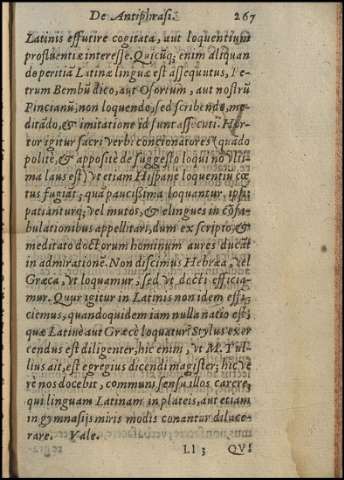 De Antiphrasi. 267
Latinis effutire cogitata, aut loquentium
profluentiæ interesse. Quicūq; enim aliquan
do peritiā Latinæ linguæ est assequutus, Pe-
trum Bembū dico, aut Osorium, aut nostrū
Pincianū, non loquendo, sed scribendo, me-
ditādo, & imitatione id sunt assecuti. Hor-
tor igitur sacri verbi concionatores (quādo
polite, & apposite de suggesto loqui no vlti-
ma laus est) vt etiam Hispane loquentiū cœ-
tus fugiāt; quā paucissima loquantur, ipsiq;
patiantur, vel mutos, & elingues in cōfa-
bulationibus appellitari, dum ex scripto, &
meditato doctorum hominum aures ducāt
in admirationē. Non discimus Hebræa, vel
Græca, vt loquamur, sed vt docti efficia-
mur. Quur igitur in Latinis non idem effi-
ciemus, quandoquidem iam nulla natio est,
quæ Latinè aut Græcè loquatur? Stylus exer
cendus est diligenter, hic enim, vt M. Tul-
lius ait, est egregius dicendi magister; hic ve
rè nos docebit, communi sensu illos carere,
qui linguam Latinam in plateis, aut etiam
in gymnasijs miris modis conantur dilace-
rare. Vale.
Ll 3 QVI